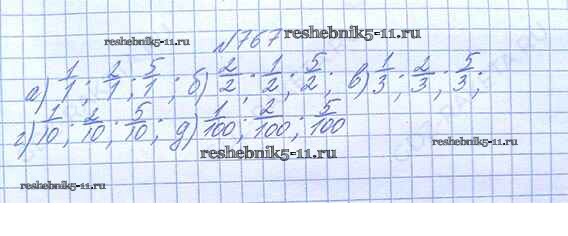 reshebnik5-11.ru
№767
reshebnik5-11.ru
а) 1/1; 2/1; 5/1; б) 2/2; 1/2; 5/2; в) 1/3; 2/3; 5/3;
г) 1/10; 2/10; 5/10; д) 1/100; 2/100; 5/100
reshebnik5-11.ru
reshebnik5-11.ru